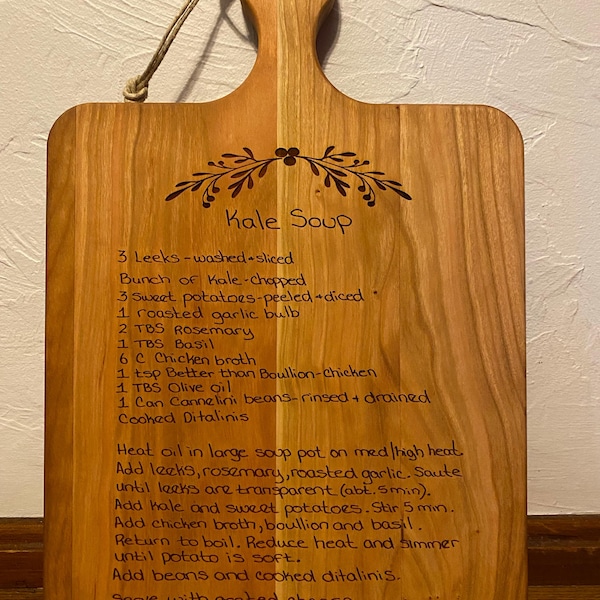 Kale Soup
3 Leeks - washed + sliced
Bunch of Kale - chopped
3 sweet potatoes - peeled + diced *
1 roasted garlic bulb
2 TBS Rosemary
1 TBS Basil
6 C Chicken broth
1 tsp Better than Boullion - chicken
1 TBS Olive oil
1 Can Cannelini beans - rinsed + drained
Cooked Ditalinis
Heat oil in large soup pot on med/high heat.
Add leeks, rosemary, roasted garlic. Saute
until leeks are transparent (abt. 5 min).
Add kale and sweet potatoes. Stir 5 min.
Add chicken broth, boullion and basil.
Return to boil. Reduce heat and simmer
until potato is soft.
Add beans and cooked ditalinis.
Serve with grated cheese